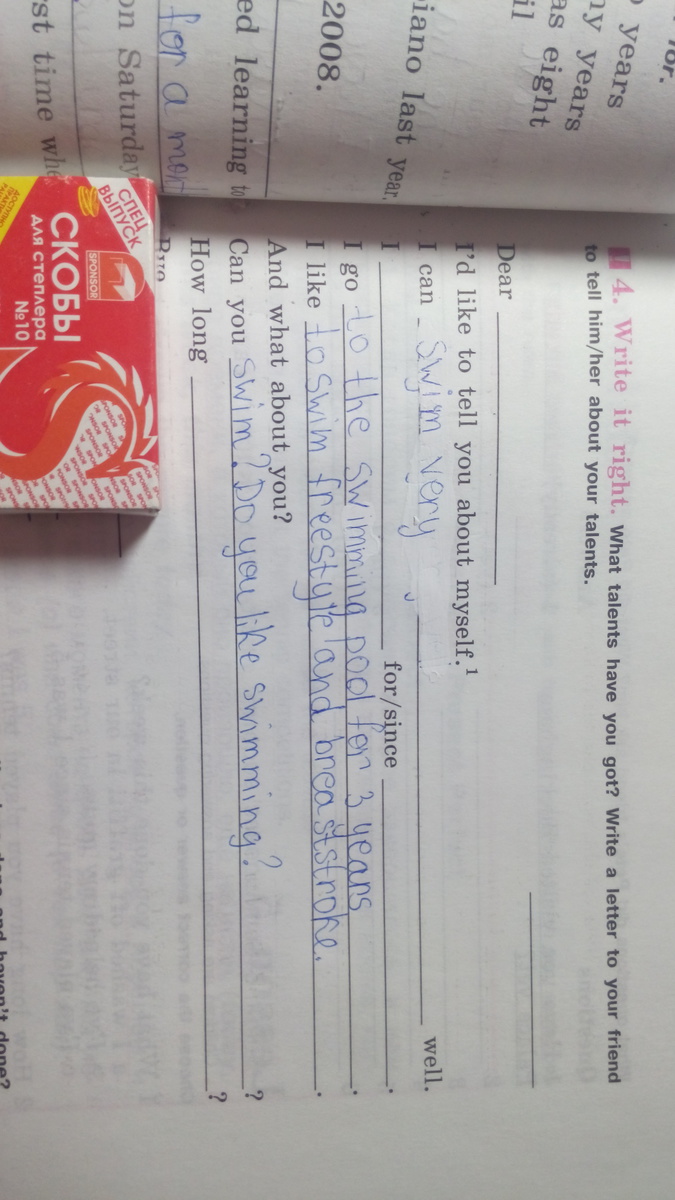 for.
years
ny years
as eight
il
iano last year,
2008.
ed learning to
for a mon
on Saturday
rst time whe
4. Write it right. What talents have you got? Write a letter to your friend
to tell him/her about your talents.
Dear
I'd like to tell you about myself.1
I can swim very well.
I for/since .
I go to the swimming pool for 3 years.
I like to swim freestyle and breaststroke.
And what about you?
Can you swim? Do you like swimming? ?
How long ?
Bye
СПЕЦ
ВЫПУСК
SPONSOR
СКОБЫ
ДЛЯ СТЕПЛЕРА
№10
done and haven't done?